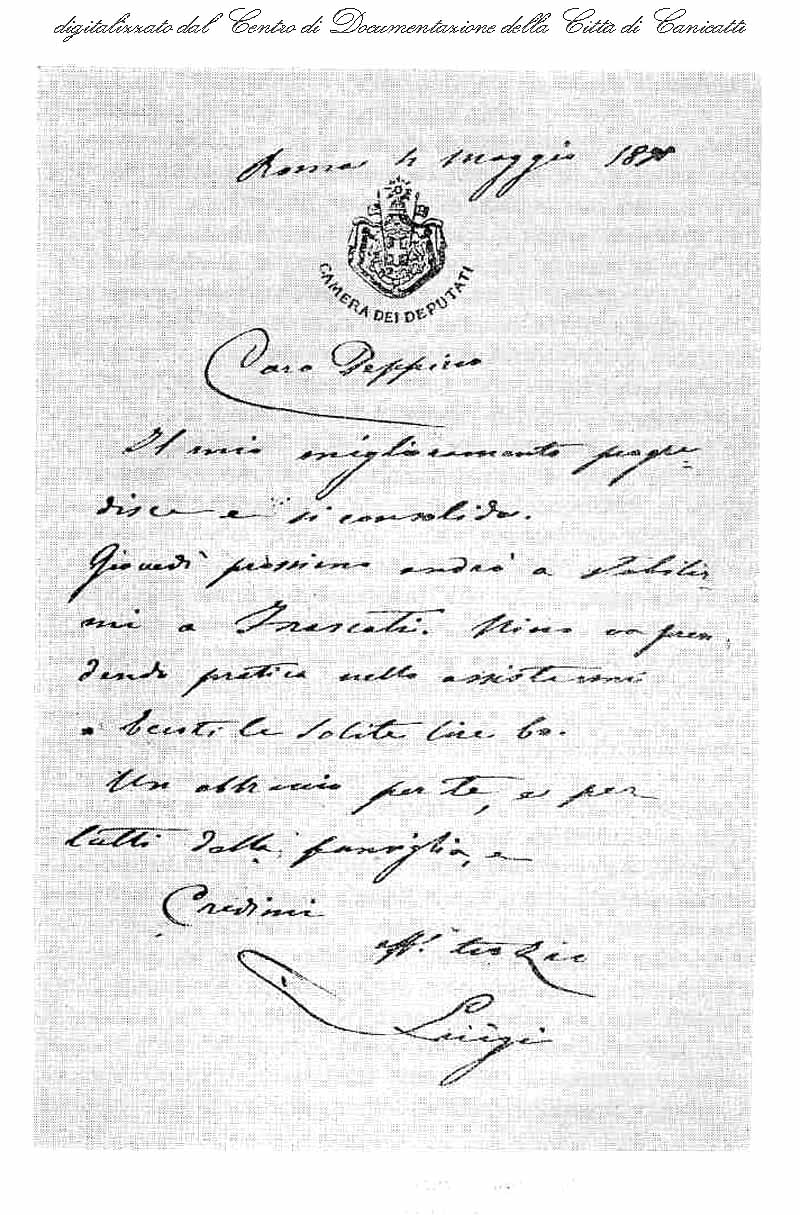 digitalizzato dal Centro di Documentazione della Città di Canicattì
Roma 4 Maggio
CAMERA DEI DEPUTATI
Caro Peppino
Il mio miglioramento progre-
disce e si consolida.
Giovedì prossimo andrò a stabilir-
mi a Frascati. Nino va pren-
dendo pratica nello assistermi
le solite lire
Un abbraccio per te, e per
tutti della famiglia, e
Credimi
Aff. tuo Zio
Luigi